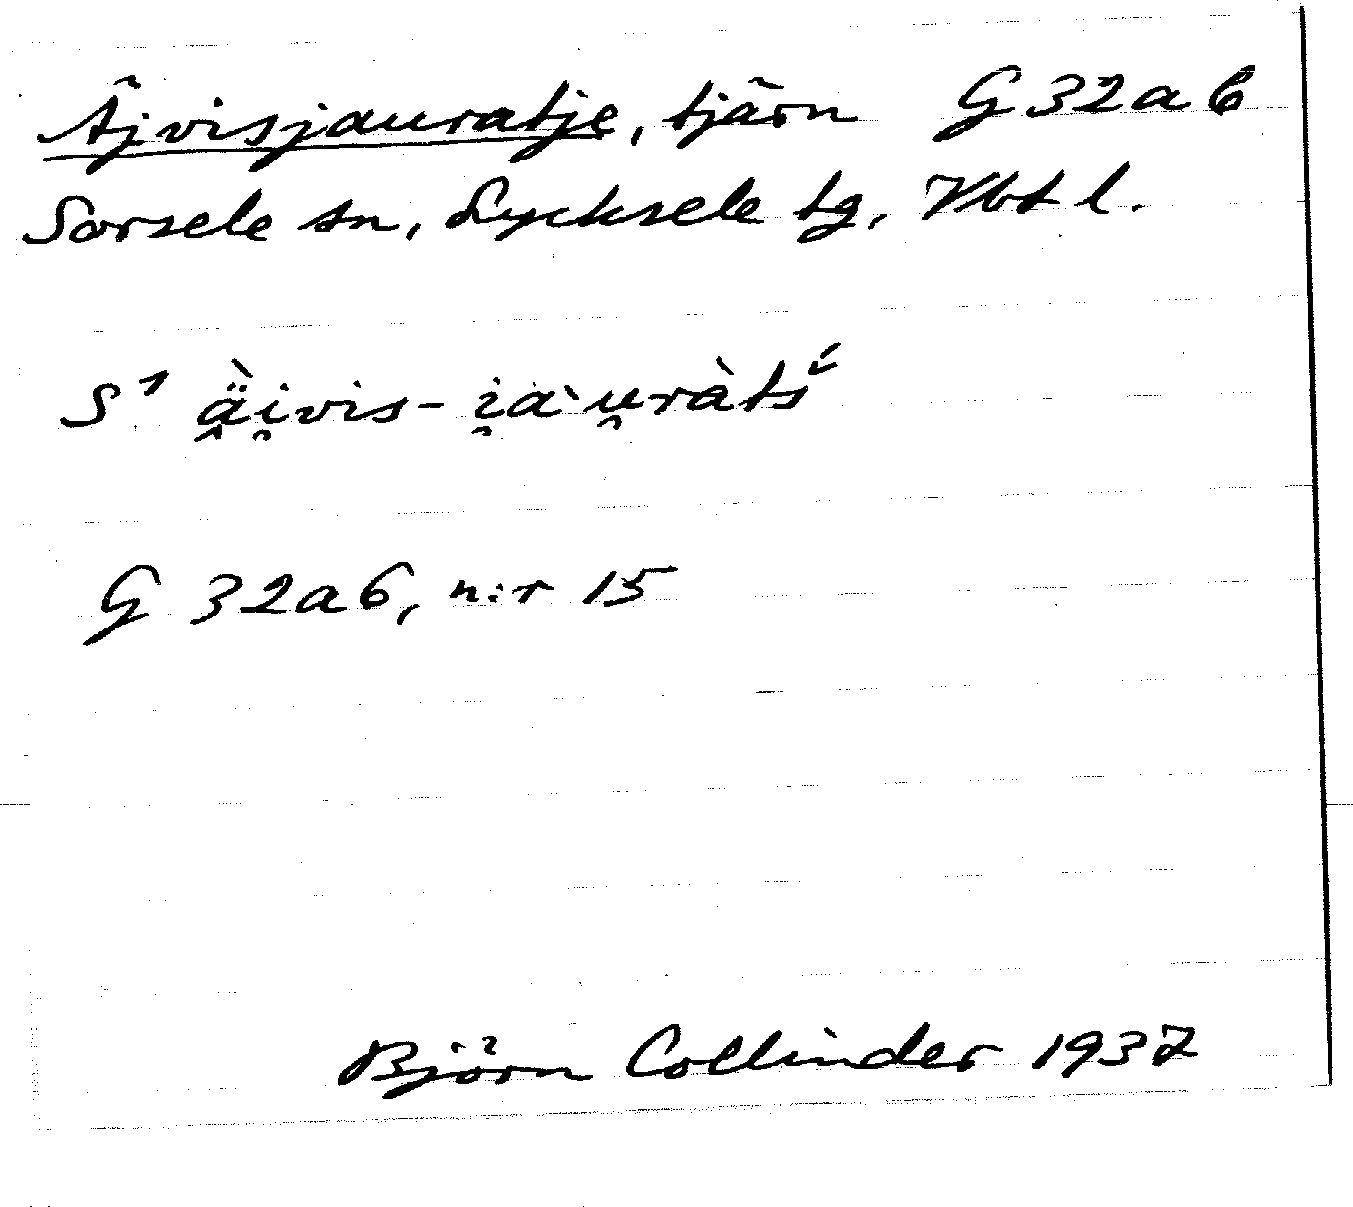 Äjvisjauratje, tjärn G 32 a b
Sorsele sn, Lycksele tg, Vbt l.
S¹ ä̭̀i̯vis-i̯a`u̯ràtš́
G 32 a 6, n:r 15
Björn Collinder 1937